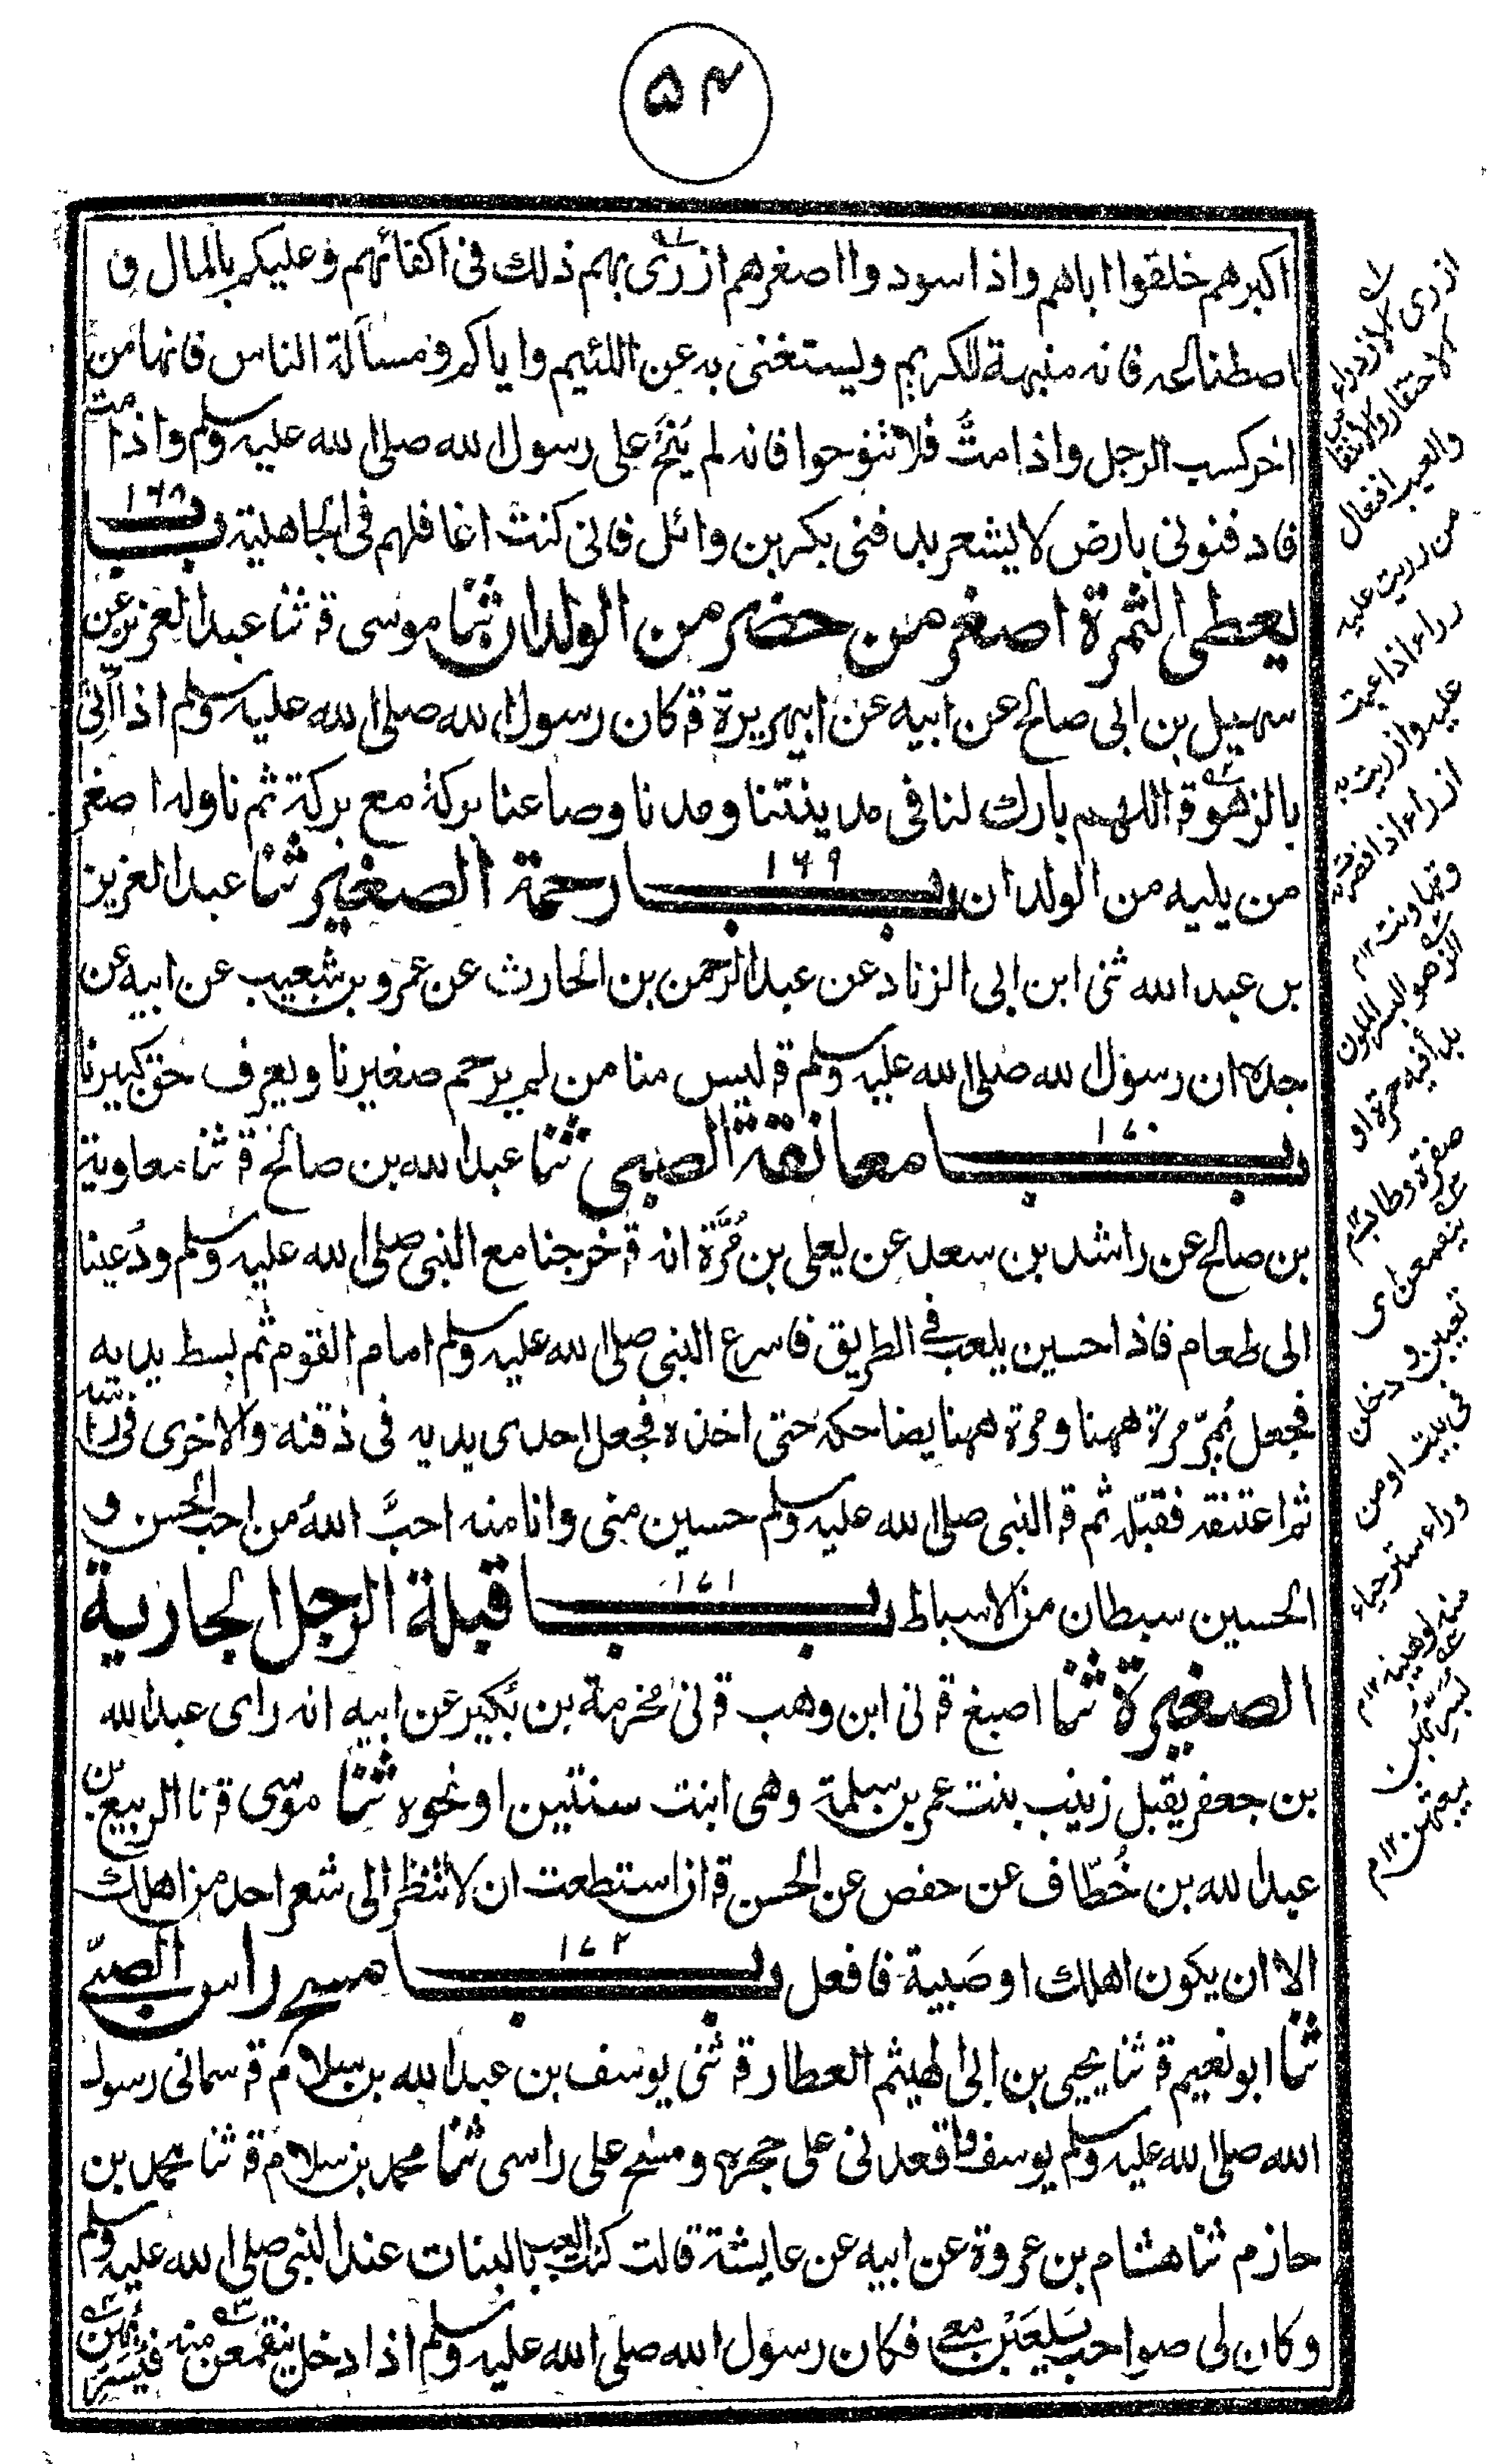 ۵۴
اكبرهم خلقوا اباهم واذا سودوا اصغرهم ازرى بهم ذلك فى اكفائهم وعليكم بالمال و
اصطناعه فانه منبهة للكريم وليستغنى به عن اللئيم واياكم ومسألة الناس فانها من
اخر كسب الرجل واذا متُّ فلا تنوحوا فانه لم يُنَحْ على رسول الله صلى الله عليه وسلم واذا مت
فادفنونى بارض لا يشعر بدفنى بكر بن وائل فانى كنت اغافلهم فى الجاهلية باب ١٦٨
يعطى الثمرة اصغر من حضر من الولدان ثنا موسى ق ثنا عبد العزيز عن
سهيل بن ابى صالح عن ابيه عن ابيهريرة ق كان رسول الله صلى الله عليه وسلم اذا اُتى
بالزهو ق اللهم بارك لنا فى مدينتنا ومدنا وصاعنا بركة مع بركة ثم ناوله اصغر
من يليه من الولدان باب ١٦٩ رحمة الصغير ثنا عبد العزيز
بن عبد الله ثنى ابن ابى الزناد عن عبد الرحمن بن الحارث عن عمرو بن شعيب عن ابيه عن
جده ان رسول الله صلى الله عليه وسلم ق ليس منا من لم يرحم صغيرنا ويعرف حق كبيرنا
باب ١٧٠ معانقة الصبى ثنا عبد الله بن صالح ق ثنا معاوية
بن صالح عن راشد بن سعد عن يعلى بن مُرَّة انه ق خرجنا مع النبى صلى الله عليه وسلم ودُعينا
الى طعام فاذا حسين يلعب فى الطريق فاسرع النبى صلى الله عليه وسلم امام القوم ثم بسط يديه
فجعل يُمِرّ مرة ههنا ومرة ههنا يضاحكه حتى اخذه فجعل احدى يديه فى ذقنه والاخرى فى راسه
ثم اعتنقه فقبّله ثم ق النبى صلى الله عليه وسلم حسين منى وانا منه احبَّ اللهُ من احب الحسن و
الحسين سبطان من الاسباط باب ١٧١ قبلة الرجل الجارية
الصغيرة ثنا اصبغ ق نى ابن وهب ق نى مخرمة بن بُكير عن ابيه انه راى عبد الله
بن جعفر يقبل زينب بنت عمر بن سلمة وهى ابنت سنتين او نحوه ثنا موسى ق نا الربيع بن
عبد الله بن خُطّاف عن حفص عن الحسن ق ان استطعت ان لا تنظر الى شعر احد من اهلك
الا ان يكون اهلك او صَبية فافعل باب ١٧٢ مسح راس الصبّى
ثنا ابو نعيم ق ثنا يحيى بن ابى الهيثم العطار ق ثنى يوسف بن عبد الله بن سلام ق سمانى رسول
الله صلى الله عليه وسلم يوسف واقعدنى على حجره ومسح على راسى ثنا محمد بن سلام ق ثنا محمد بن
حازم ثنا هشام بن عروة عن ابيه عن عايشة قالت كنت العب بالبنات عند النبى صلى الله عليه وسلم
وكان لى صواحب يَلعَبْن معى فكان رسول الله صلى الله عليه وسلم اذا دخل ينقمعن منه فيُسَرِّبُهن
ازرى الازدراء
الاحتقار والانتقاص
والعيب افتعال
من زريت عليه
زراء اذا عبت
عليه وازريت به
ازراء اذا قصرت به
وتهاونت ١٢م
الزهو البسر الملون
بدأ فيه حمرة او
صفرة وطاب ١٢م
ينقمعن اى
تغيبن ودخلن
فى بيت او من
وراء ستر حياء
منه او هيبة ١٢م
يُسَرِّبُهن
يبعثهن ١٢م